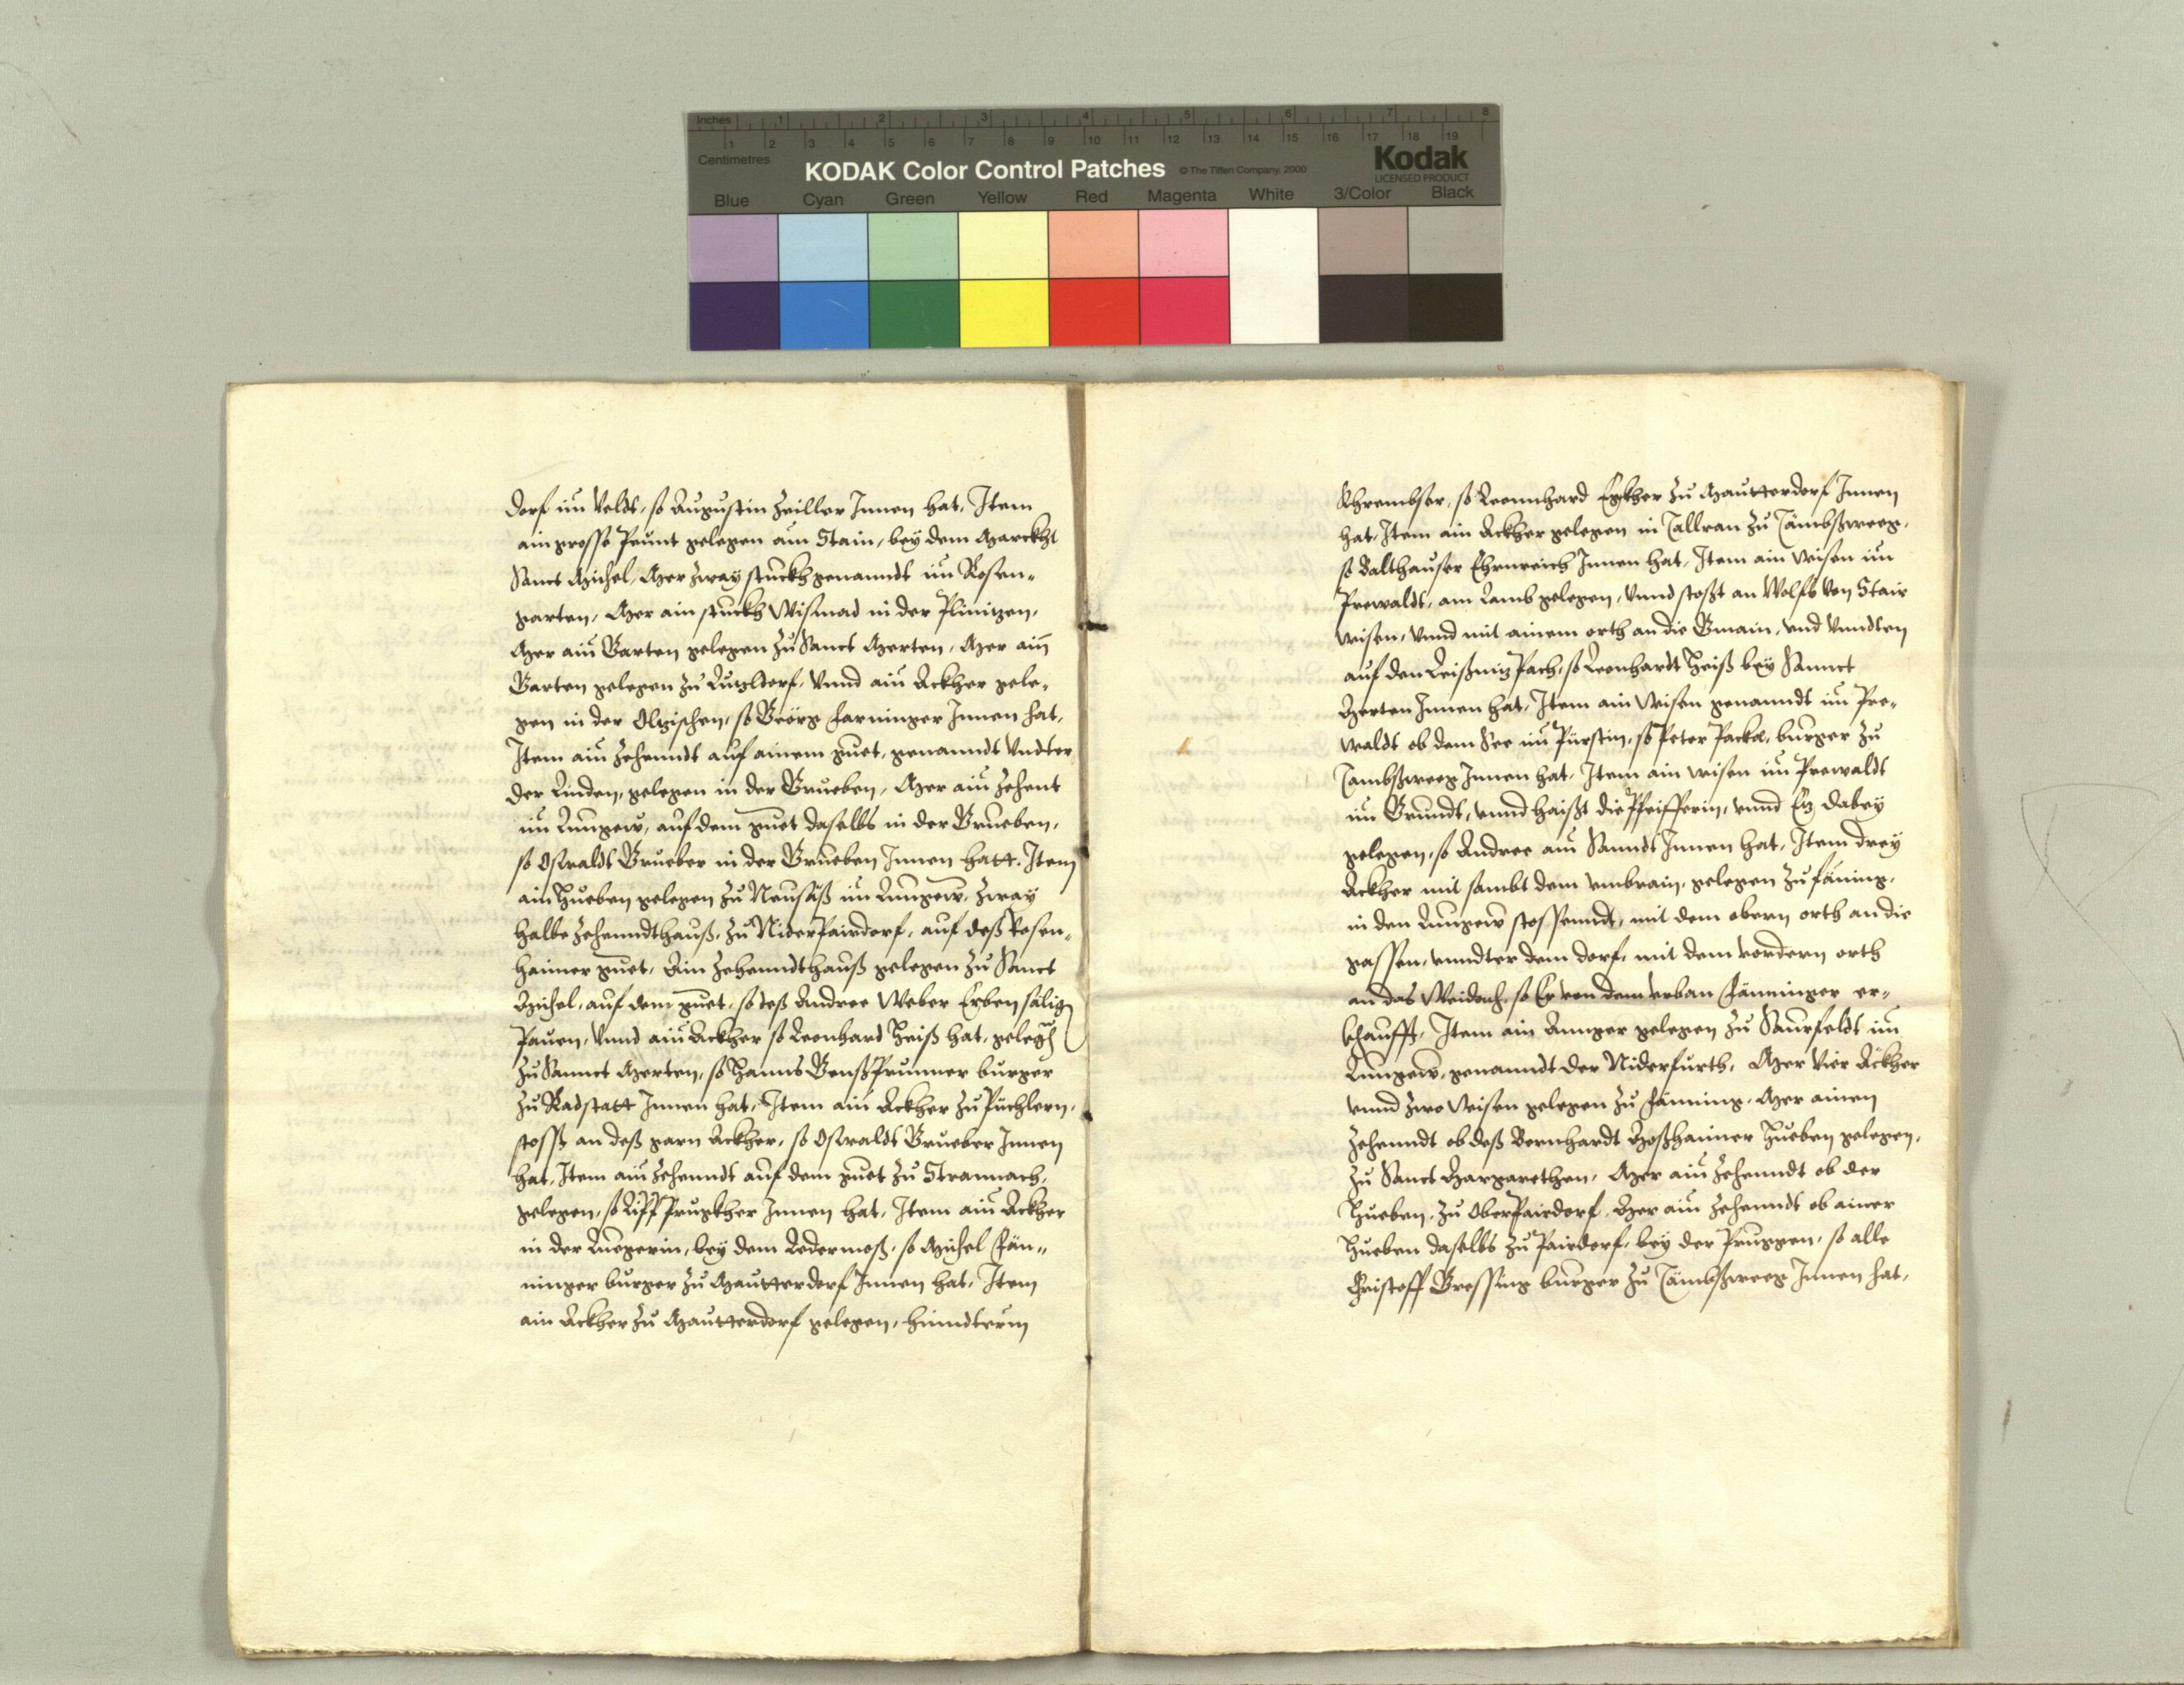 Inches 1 2 3 4 5 6 7 8
1 2 3 4 5 6 7 8 9 10 11 12 13 14 15 16 17 18 19
Centimetres
KODAK Color Control Patches © The Tiffen Company, 2000 Kodak
LICENSED PRODUCT
Blue Cyan Green Yellow Red Magenta White 3/Color Black
dorf im Veldt, so Augustin Zeiller Innen hat, Item
ain grosse Peunt gelegen am Stain, bey dem Marckht
Sanct Michel, Mer zway stuckh genanndt im Rosen-
garten, Mer ain stuckh Wismad in der Plinitzen,
Mer ain Garten gelegen zu Sanct Merten, Mer ain
Garten gelegen zu Lutzldorf, Vnnd ain Ackher gele-
gen in der Oltzischen, so Geörg Farninger Innen hat,
Item ain Zehenndt auf ainem guet, genanndt Vndter
der Linden, gelegen in der Grueben, Mer ain Zehent
im Lungew, auf dem guet daselbs in der Grueben,
so Oswaldt Grueber in der Grueben Innen hatt. Item
ain Hueben gelegen zu Neusäß im Lungew, zway
halbe Zehenndthauß, zu Niderpairdorf, auf deß Rosen-
haimer guet, Ain Zehenndthauß gelegen zu Sanct
Michel, auf dem guet, so deß Andree Weber Erben sälig
Pauen, Vnnd ain Ackher so Leonhard Heiß hat, gelegen
zu Sannct Merten, so Hanns Genßprunner burger
zu Radstatt Innen hat, Item ain Ackher zu Püchlern,
stosst an deß garn Ackher, so Oswaldt Grueber Innen
hat, Item ain Zehenndt auf dem guet zu Strannach,
gelegen, so Lipp Prugkher Innen hat, Item ain Ackher
in der Luegerin, bey dem Ledermoß, so Michel Fän-
ninger burger zu Mautterdorf Innen hat, Item
ain Ackher zu Mautterdorf gelegen, hinndterm
Khrembser, so Leonnhard Egkher zu Mautterdorf Innen
hat, Item ain Ackher gelegen in Tallran zu Tämbßweeg,
so Balthauser Ehrnreich Innen hat, Item ain wisen im
Prewaldt, am Lamb gelegen, Vnnd stosst an Wolff Von Stair
wisen, Vnnd mit ainem orth an die Gmain, vnd Vnndten
auf den Leißnitz Pach, so Leonhardt Heiß bey Sannct
Merten Innen hat, Item ain Wisen genanndt im Pre-
waldt ob dem See im Pürstin, so Peter Packl, burger zu
Tambßweeg Innen hat, Item ain wisen im Prewaldt
im Grundt, vnnd haißt die Pfeifferin, vnnd Etz dabey
gelegen, so Andree am Sanndt Innen hat, Item drey
Ackher mit sambt dem vmbrain, gelegen zu Fäning,
in den Lungew stossenndt, mit dem obern orth an die
gassen, vnndter dem dorf, mit dem vordern orth
an das Weidach, so Er von dem Vrban Fänninger er-
khaufft, Item ain Annger gelegen zu Saurfeldt im
Lungew, genanndt der Niderfurth, Mer Vier Äckher
vnnd zwo Wisen gelegen zu Fänning, Mer ainen
Zehenndt ob deß Bernhardt Moßhaimer Hueben gelegen,
zu Sanct Margarethen, Mer ain Zehenndt ob der
Hueben, zu Oberpairdorf, Mer ain Zehenndt ob ainer
Hueben daselbs zu Pairdorf, bey der Pruggen, so alle
Christoff Gressing burger zu Tämbßweeg Innen hat,